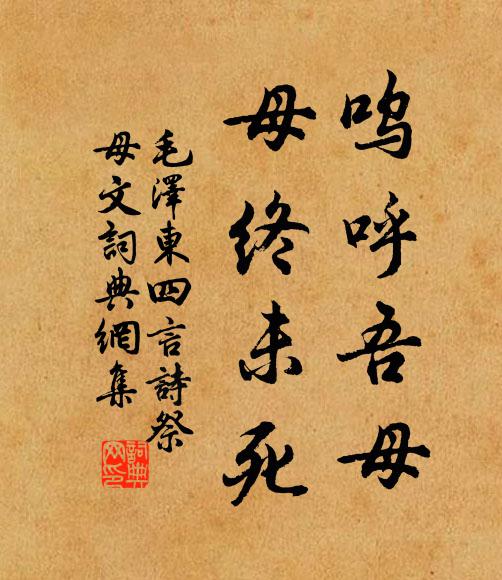 嗚呼吾母
母终未死
毛澤東四言詩祭
母文詞典網集
詞典
网印